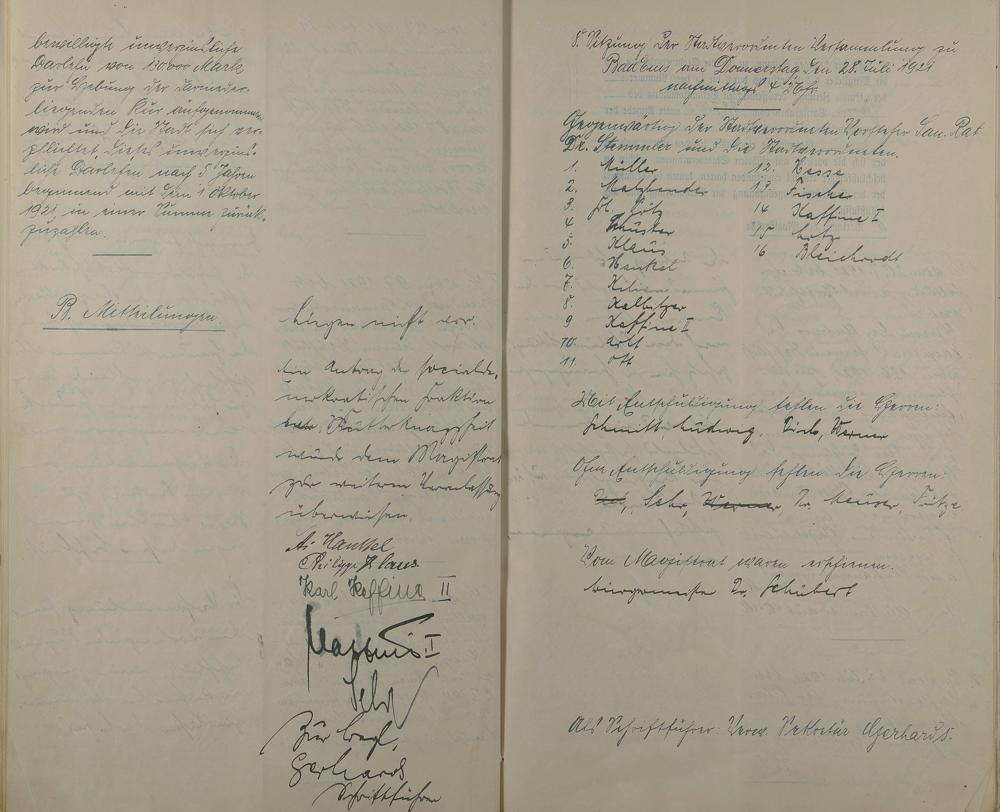 bewilligte unverzinsliche
Darlehn von 150000 Mark
zur Hebung der darnieder-
liegenden Kur aufgenommen
wird und die Stadt sich ver-
pflichtet, dieses unverzins-
liche Darlehen nach 5 Jahren
beginnend mit dem 1 Oktober
1921, in einer Summe zurück-
zuzahlen.
B. Mitteilungen
liegen nicht vor.
Ein Antrag der socialde-
mokratischen Fraktion
betr. Futterknappheit
wurde dem Magistrat
zur weiteren Veranlassung
überwiesen.
Hankel
Philipp Klaus.
Karl Kaffine II
Kaffine I
Sehr
Zur Begl.
Gerhards
Schriftführer
8. Sitzung der Stadtverordneten Versammlung zu
Bad Ems am Donnerstag den 28. Juli 1921
nachmittags 4 Uhr.
Gegenwärtig der Stadtverordneten Vorsteher San. Rat
Dr. Stemmler und die Stadtverordneten.
1. Müller
2. Matzbender
3. Götz
4 Schuster
5. Klaus
6. Hankel
7. Kilian
8. Kalbitzer
9 Kaffine II
10. Arlt
11. Ott
12. Hesse
13 Fischer
14 Kaffine I
15 Lotz
16 Bleichrodt
Mit Entschuldigung fehlen die Herren:
Schmitt, Ludwig, Werner
Ohne Entschuldigung fehlen die Herren:
Sehr, Werner Dr. Fritze
Vom Magistrat waren erschienen:
Bürgermeister Dr. Schubert
Als Schriftführer: Verw. Sekretär Gerhards.